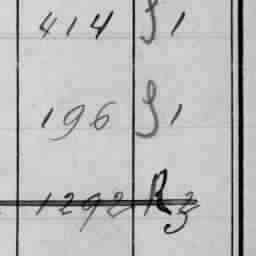 414 S 1
196 S 1
1292 R 3